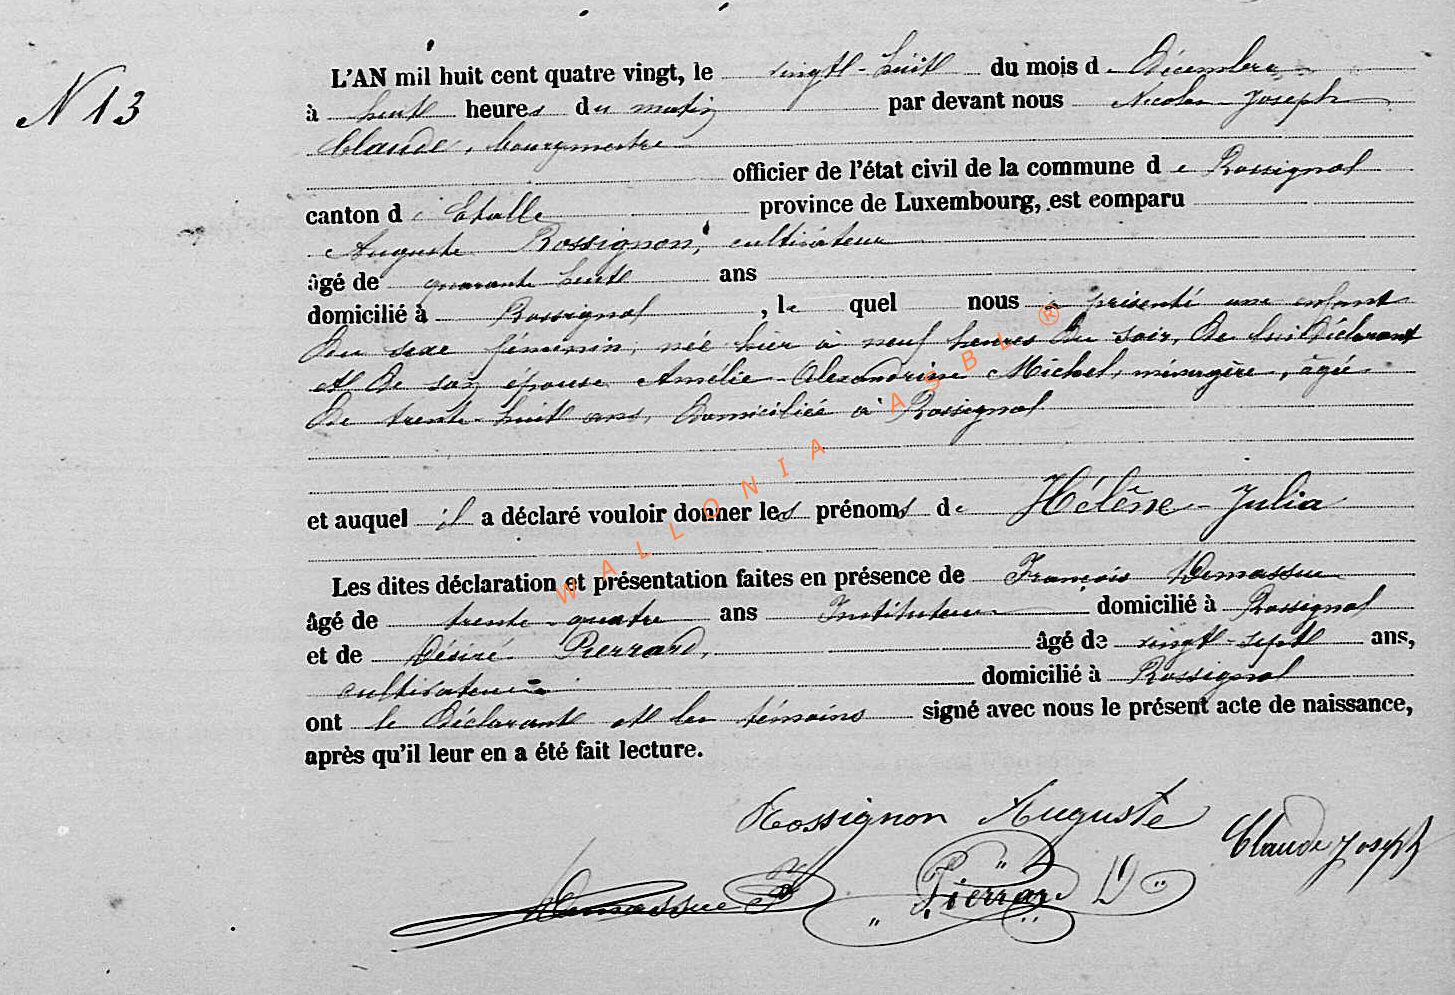 N 13
L'AN mil huit cent quatre vingt, le vingt-huit du mois d Décembre
à huit heures du matin par devant nous Nicolas Joseph
Claude, bourgmestre
officier de l'état civil de la commune de Rossignol
canton d'Etalle province de Luxembourg, est comparu
Auguste Rossignon, cultivateur
âgé de quarante huit ans
domicilié à Rossignol, lequel nous a présenté une enfant
du sexe féminin, née hier à neuf heures du soir, de lui Déclarant
et de son épouse Amélie-Alexandrine Michel, ménagère, âgée
de trente-huit ans, domiciliée à Rossignol
et auquel il a déclaré vouloir donner les prénoms de Hélène-Julia
Les dites déclaration et présentation faites en présence de François Demassue
âgé de trente-quatre ans Instituteur domicilié à Rossignol
et de Désiré Pierrard, âgé de vingt-sept ans,
cultivateur domicilié à Rossignol
ont le Déclarant et les témoins signé avec nous le présent acte de naissance,
après qu'il leur en a été fait lecture.
Rossignon Auguste
Claude Joseph
Demassue F
Pierrard D
WALLONIA ASBL ®